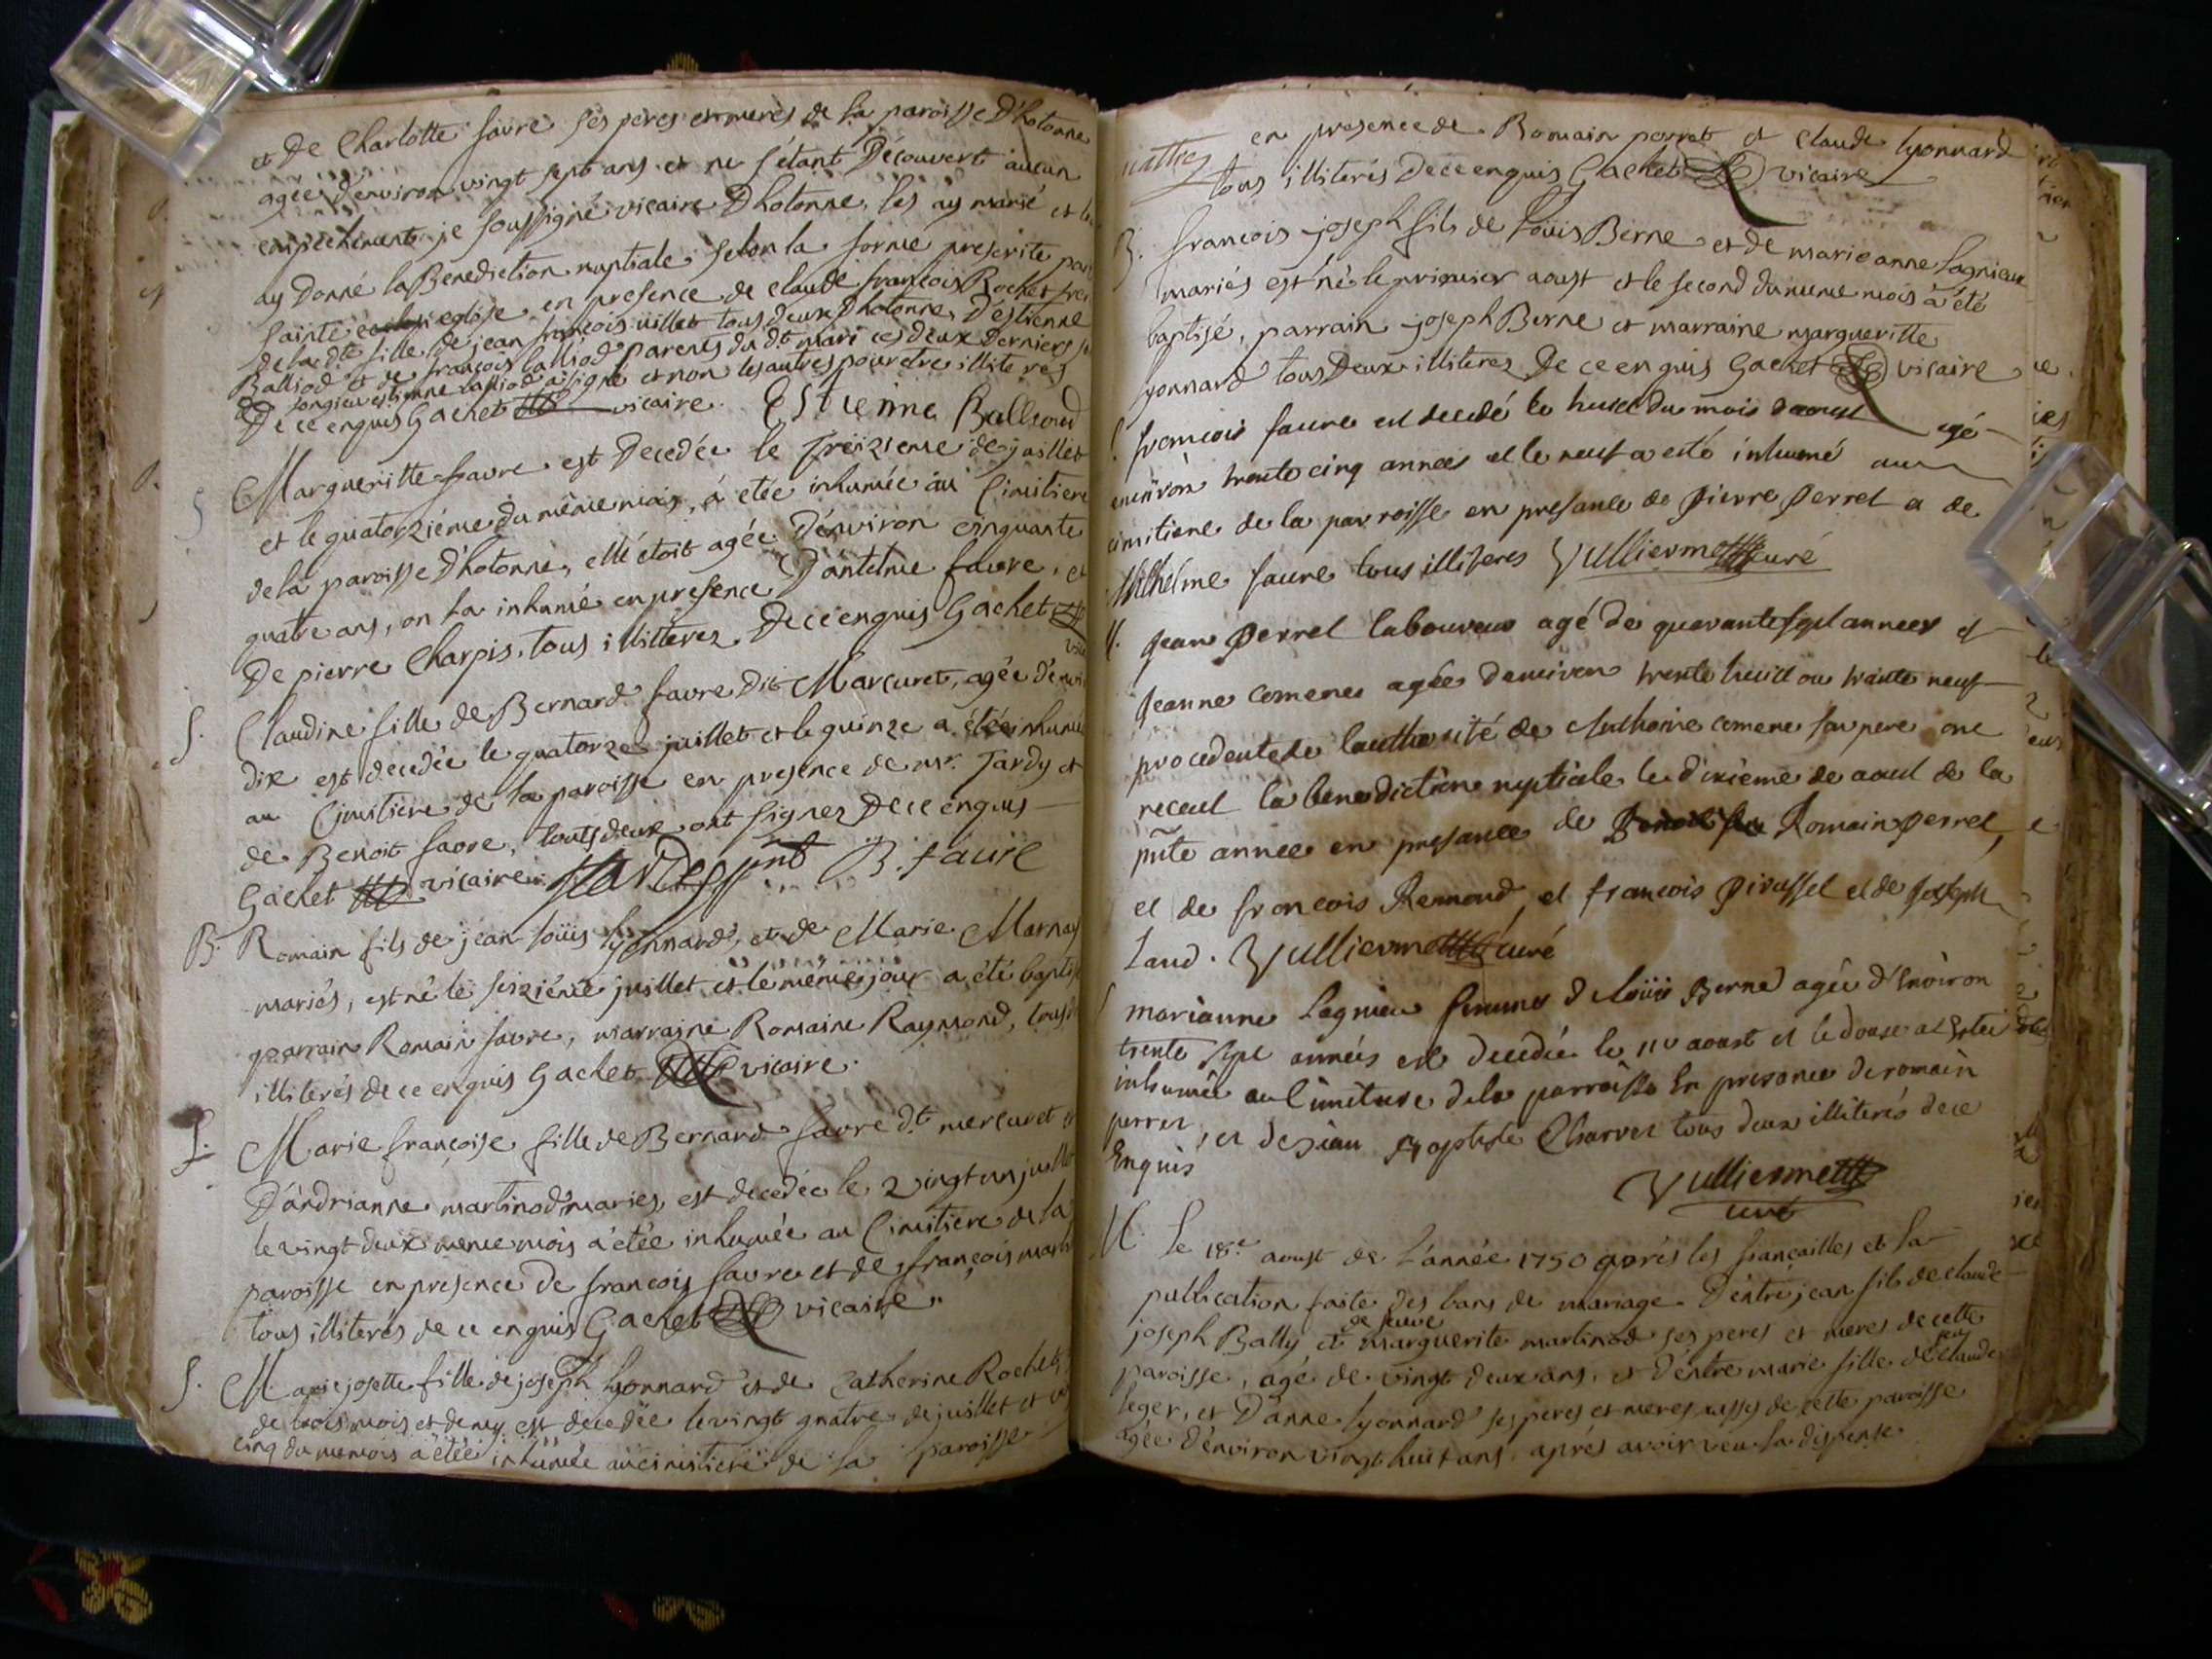 et de Charlotte favre ses peres et meres de la paroisse D'hotonne
agée d'environ vingt sept ans et ne s'étant Découvert aucun
empechement je soussigné vicaire D'hotonne, les ay marié et
ay Donné la Benediction nuptiale selon la forme prescrite par
Sainte eglise en presence de claude françois Rochet
de la dte fille, de jean françois üillet tous deux D'hotonne, D'estienne
Balliod et de françois balliod parents du dt mari ces deux Derniers
songieu estienne balliod a signé et non les autres pour etre illiterés
De ce enquis Gachet vicaire. Estienne Ballioud
S Margueritte favre est Decedée le Treizieme de juillet
et le quatorziéme du même mois, a etée inhumée au Cimitiere
de la paroisse D'hotonne, elle étoit agée D'environ cinquante
quatre ans, on l'a inhumé en presence D'antelme favre, et
De pierre Charpis, tous illitterez De ce enquis Gachet
S. Claudine fille de Bernard favre Dit Marcuret, agée d'environ
dix est decedée le quatorze juillet et le quinze a étée inhumée
au Cimitiere de la paroisse en presence de mr. Tardy et
de Benoit favre, touts deux ont signez De ce enquis
Gachet vicaire. Tardy B. faure
B. Romain fils de jean loüis lyonnard, et de Marie Marnay
mariés, est né le seiziéme juillet et le même jour a été baptisé
parrain Romain favre, marraine Romaine Raymond, tous
illiterés de ce enquis Gachet vicaire.
S. Marie françoise fille de Bernard favre dt mercuret et
D'andrianne martinod mariés, est decedée le vingt un juillet
le vingt deux meme mois a étée inhumée au Cimitiere de la
paroisse en presence de françois favre et de françois
tous illiterés de ce enquis Gachet vicaire.
S. Marie josette fille de joseph lyonnard et de Catherine Rochet
de trois mois et demy est decedée le vingt quatre de juillet et
cinq du meme mois a étée inhumée au cimitiere de la paroisse
en presence de Romain perret et Claude lyonnard
tous illiterés de ce enquis Gachet vicaire
B. françois joseph fils de loüis Berne et de marieanne lagnieux
mariés est né le premier aoust et le second du meme mois a été
baptisé, parrain joseph Berne et marraine margueritte
lyonnard tous Deux illiterez De ce enquis Gachet vicaire
S francois faure est decedé le huict du mois d'aoust agé
enuiron trente cinq années et le neuf a esté inhumé au
cimitiere de la parroisse en presance de pierre perret et de
faure tous illiteres Vulliermet curé
M. Jean perret laboureur agé de quarante sept annees et
Jeanne comene agée denuiron trente huict ou trante neuf
procedente de lauthorité de Anthoine comene son pere ont
receut la benediction nuptiale le dixieme de aoust de la
pnte année en presance de Romain perret,
et de francois Remond et françois pirassel et de Joseph
Land. Vulliermet curé
S marianne Lagnieu femme de loüis Berne agée d'Enüiron
trente sept années est decedée le 11e aoust et le douse a Estée
inhumée au Cimitiere de la parroisse En presence de romain
perret, et de jean Baptiste Charvet tous deux illiterés de ce
Enquis
Vulliermet
curé
M. Le 18e. aoust de L'année 1750 aprés les fiançailles et la
publication faite des bans de mariage D'entre jean fils de claude
joseph Bally et de feuve marguerite martinod ses peres et meres de cette
paroisse, agé de vingt deux ans, et D'entre marie fille de feu claude
leger, et D'anne lyonnard ses peres et meres aussy de cette paroisse
agée d'environ vingt huit ans, aprés avoir veu la dispense